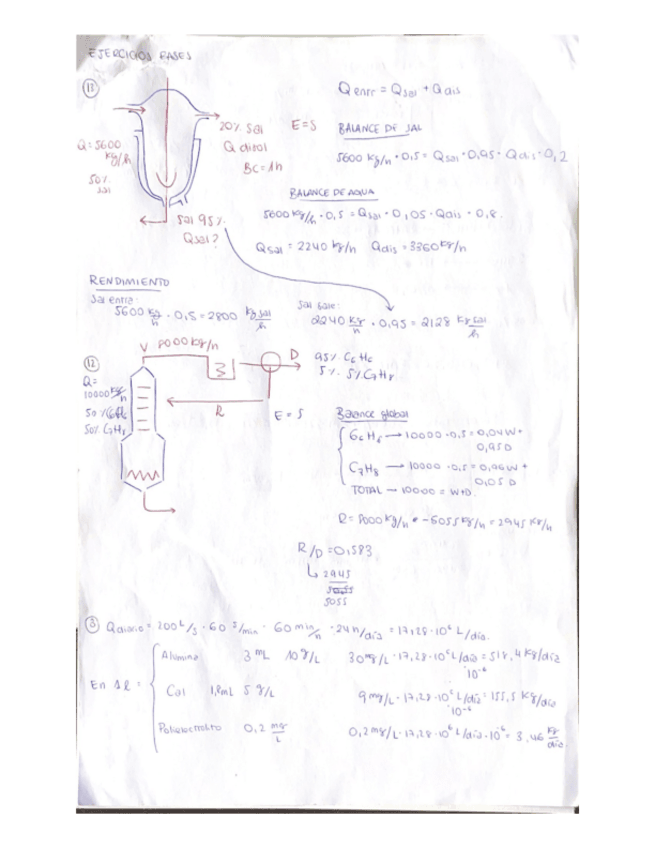 EJERCICIOS BASES
11
Q entr = Qsal + Qdis
20% sal
E=S
BALANCE DE SAL
Q=5600
Kg/h
Q ditol
BC=1h
5600 Kg/h · 0,5 = Qsal · 0,95 · Qdis · 0,2
50%
sal
BALANCE DE AQUA
Sal 95%
5600 Kg/h · 0,5 = Qsal · 0,05 · Qdis · 0,8.
Qsal?
Qsal = 2240 kg/h Qdis = 3360 Kg/h
RENDIMIENTO
Sal entra:
5600 Kg/h · 0,5 = 2800 Kg sal/h
Sal sale:
2240 Kg/h · 0,95 = 2128 Kg sal/h
12
V 8000 Kg/h
D
95% C6H6
5%. 5% C7H8
Q=
10000 Kg/h
50% C6H6
50% C7H8
R
E = S
Balance global
C6H6 → 10000 · 0,5 = 0,04W +
0,95D
C7H8 → 10000 · 0,5 = 0,96W +
0,05D
TOTAL → 10000 = W+D.
R = 8000 Kg/h - 5055 Kg/h = 2945 Kg/h
R/D = 0,583
2945
5055
8 Qdiario = 200 L/s · 60 s/min · 60 min/h · 24 h/día = 17,28·10⁶ L/día.
En 1l =
Alumina 3 mL 10 g/L 30 mg/L · 17,28·10⁶ L/día = 518,4 Kg/día
·10⁻⁶
Cal 1,8mL 5 g/L 9 mg/L · 17,28·10⁶ L/día = 155,5 Kg/día
·10⁻⁶
Polielectrolito 0,2 mg/L 0,2 mg/L · 17,28·10⁶ L/día · 10⁻⁶ = 3,46 Kg/día.